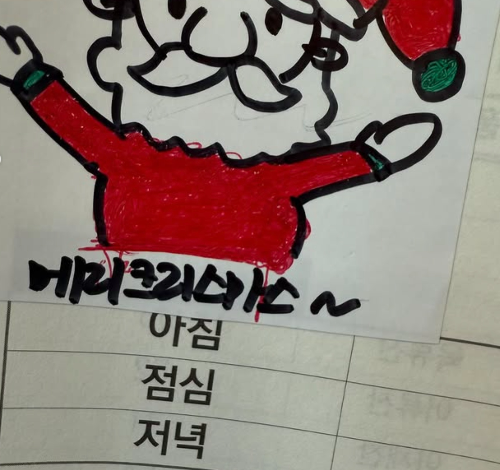 메리크리스마스~
아침
점심
저녁